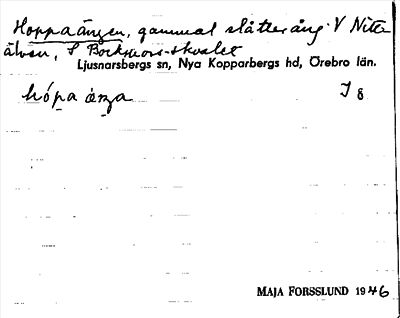 Hoppaängen, gammal slåtteräng. V Nitt-
älven, S Bockmors-skvalet
Ljusnarsbergs sn, Nya Kopparbergs hd, Örebro län.
hópa æŋa I 8
MAJA FORSSLUND 1946